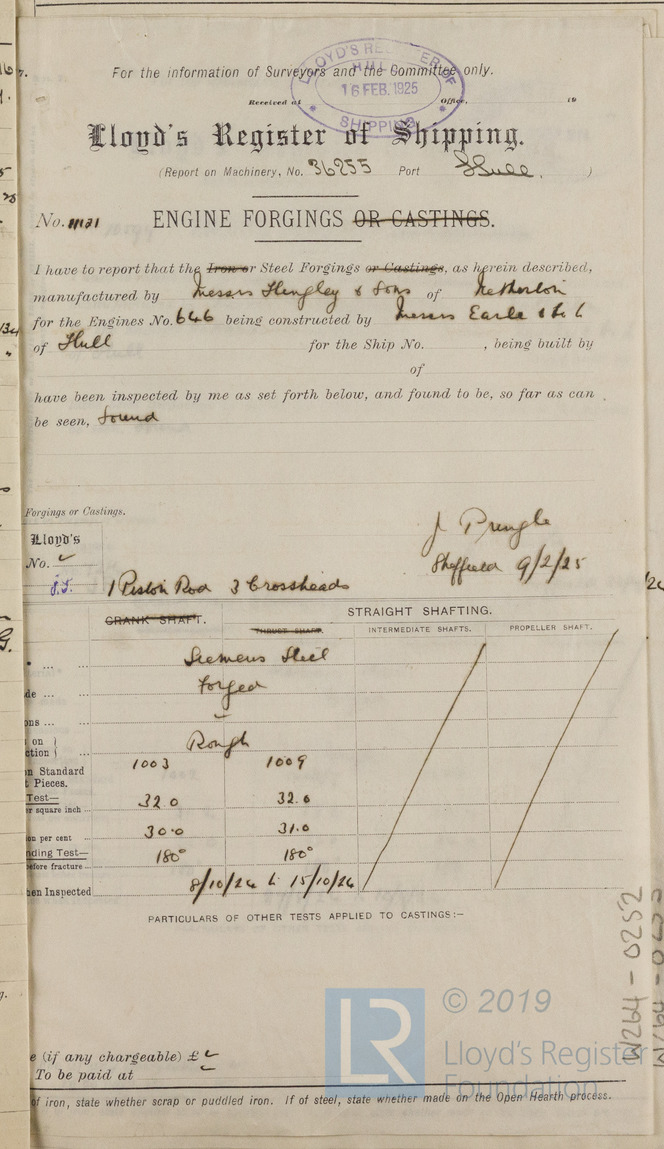 For the information of Surveyors and the Committee only.
LLOYD'S REGISTER OF SHIPPING
HULL
16 FEB. 1925
Received at Office, 19
Lloyd's Register of Shipping.
(Report on Machinery, No. 36255 Port Hull. )
No. ENGINE FORGINGS OR CASTINGS.
I have to report that the Iron or Steel Forgings or Castings, as herein described,
manufactured by Messrs Hingley & Sons of Netherton
for the Engines No. 646 being constructed by Messrs Earle
of Hull for the Ship No. , being built by
of
have been inspected by me as set forth below, and found to be, so far as can
be seen, Sound
Forgings or Castings.
J Pringle
Sheffield 9/2/25
Lloyd's
No.
1 Piston Rod 3 Crossheads
CRANK SHAFT. STRAIGHT SHAFTING.
THRUST SHAFT. INTERMEDIATE SHAFTS. PROPELLER SHAFT.
Siemens Steel
Forged
Rough
on
ction
n Standard 1003 1009
Pieces.
Test— 32.0 32.0
r square inch
on per cent 30.0 31.0
nding Test— 180° 180°
before fracture
hen Inspected 8/10/24 to 15/10/24
PARTICULARS OF OTHER TESTS APPLIED TO CASTINGS:—
e (if any chargeable) £
To be paid at
of iron, state whether scrap or puddled iron. If of steel, state whether made on the Open Hearth process.
W264-0252
LR
© 2019
Lloyd's Register
Foundation